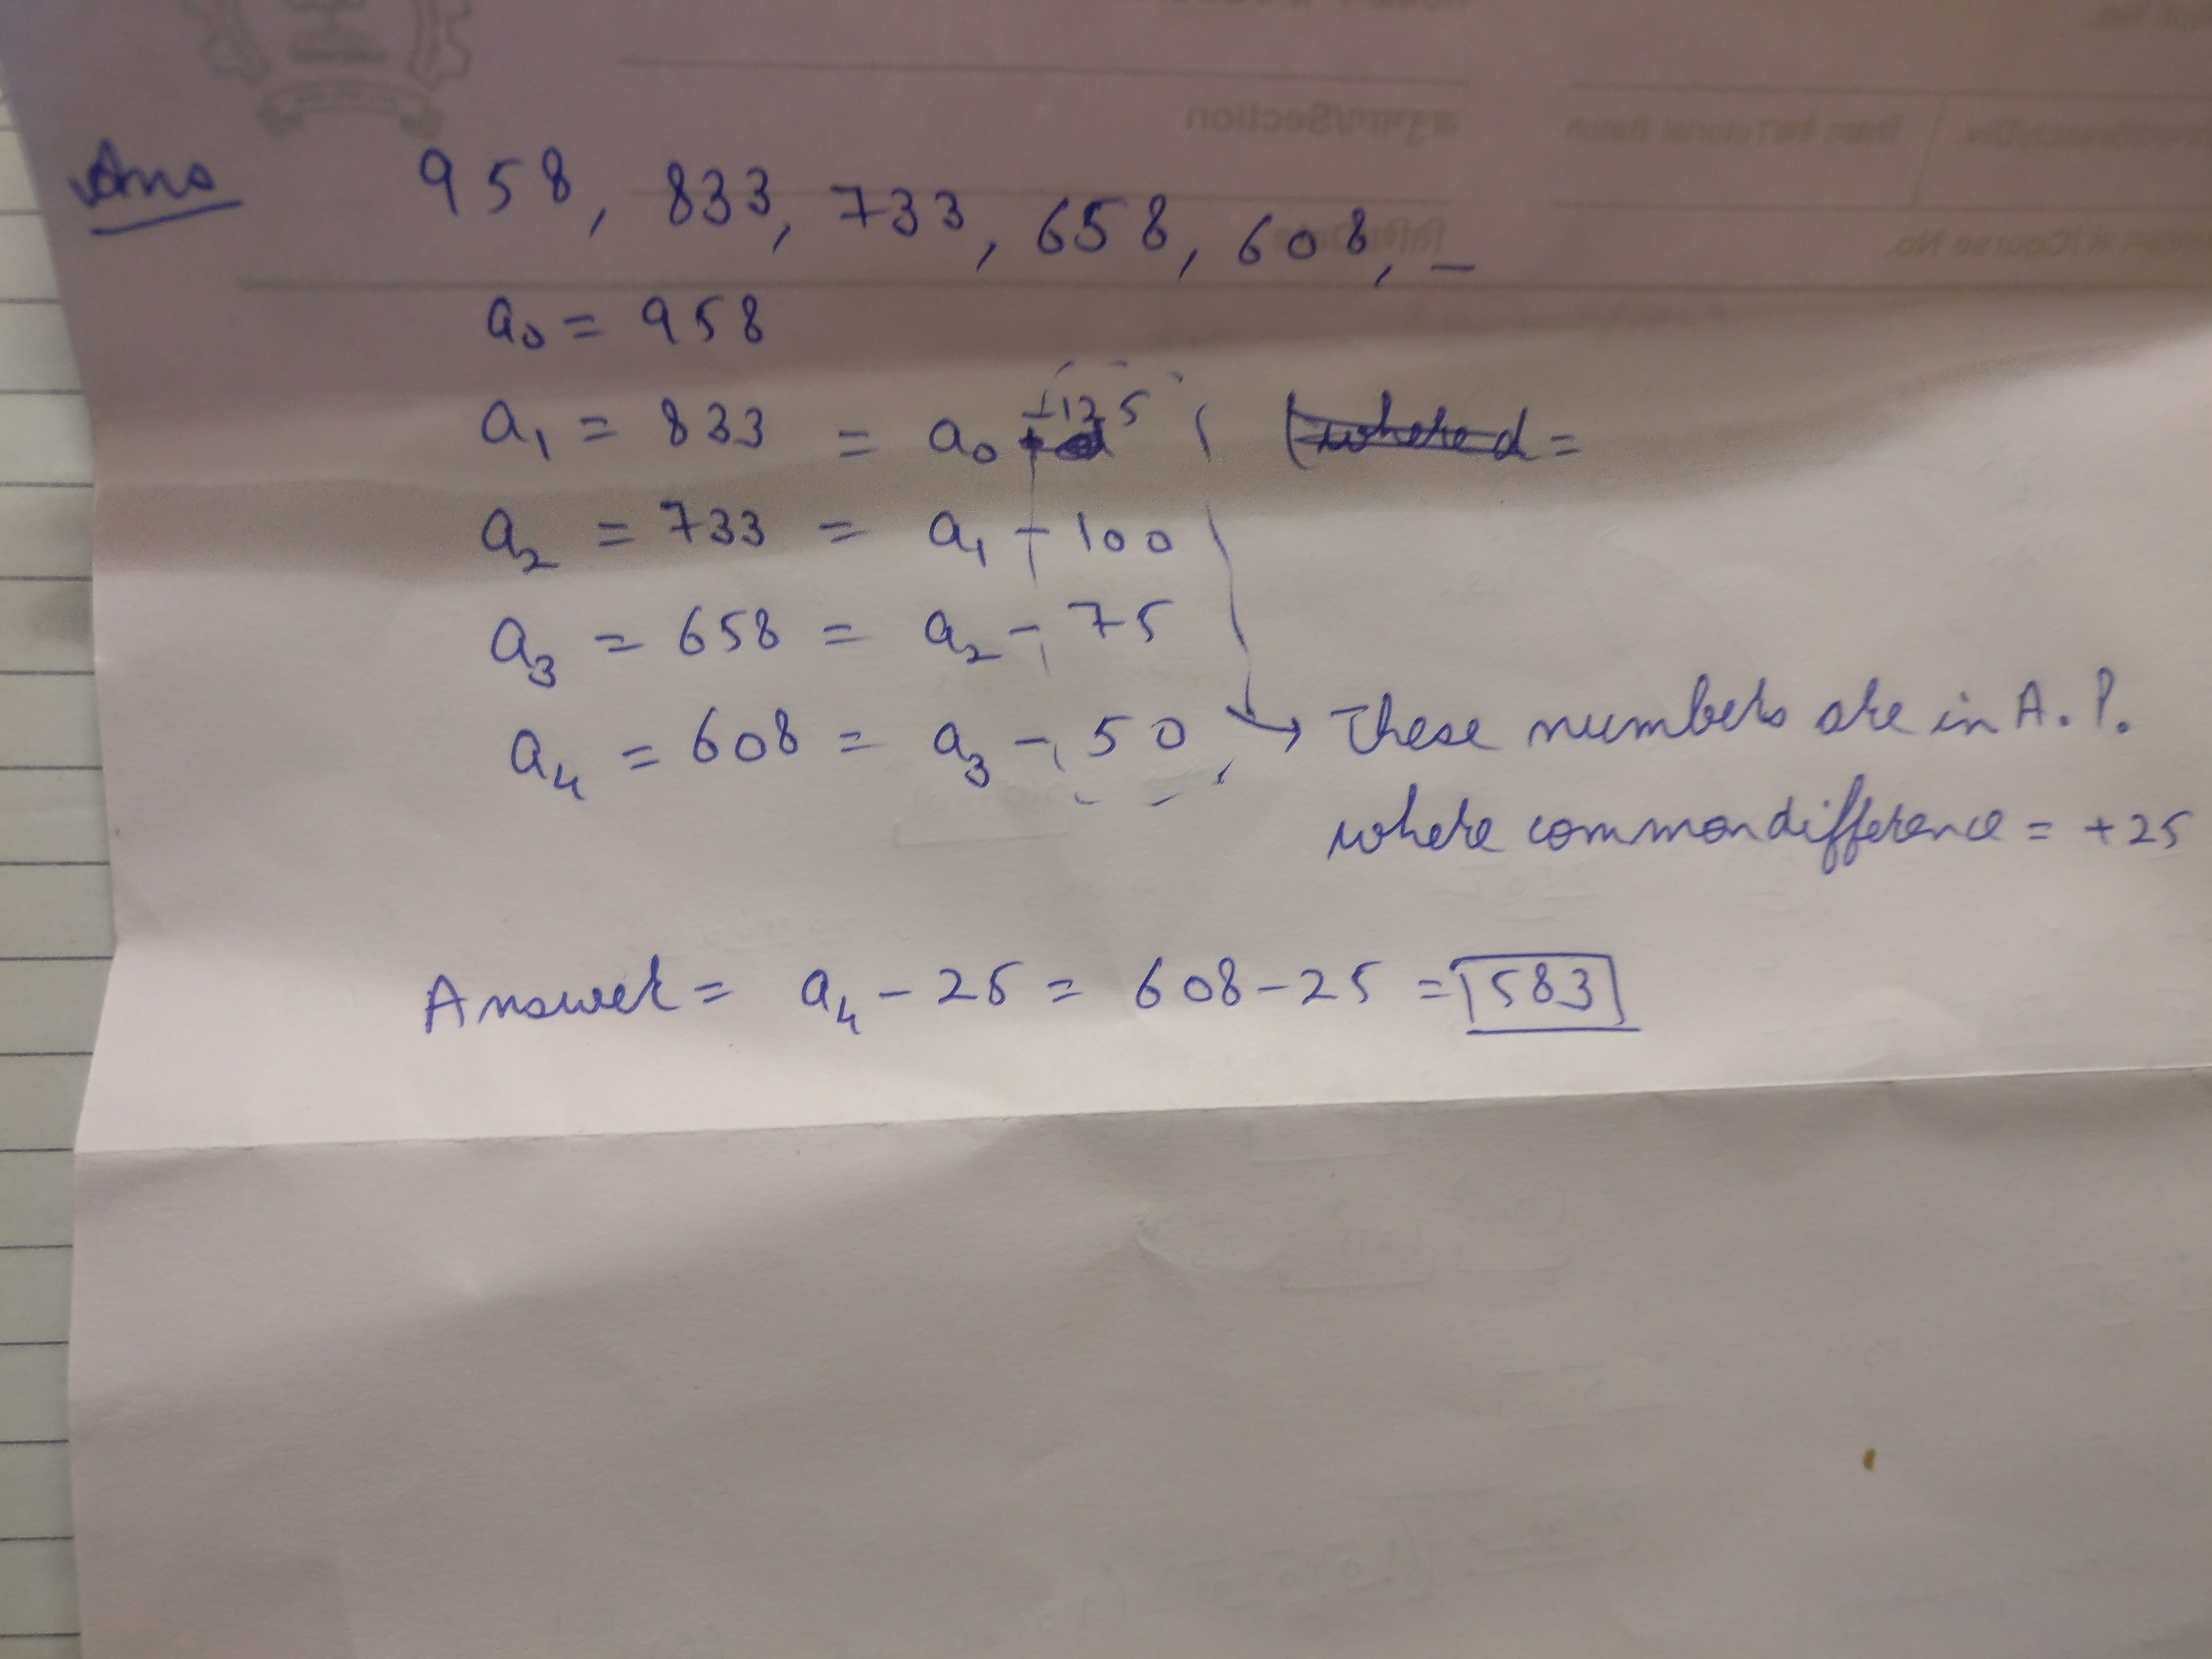 Ans 958, 833, 733, 658, 608, _
a₀ = 958
a₁ = 833 = a₀ -125
a₂ = 733 = a₁ - 100
a₃ = 658 = a₂ - 75
a₄ = 608 = a₃ - 50 → These numbers are in A.P.
where common difference = +25
Answer = a₄ - 25 = 608 - 25 = 583